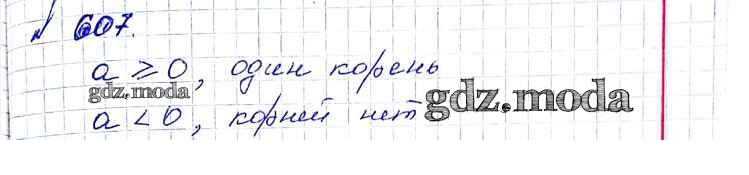 № 607.
a ⩾ 0, один корень
gdz.moda
a < 0, корней нет
gdz.moda